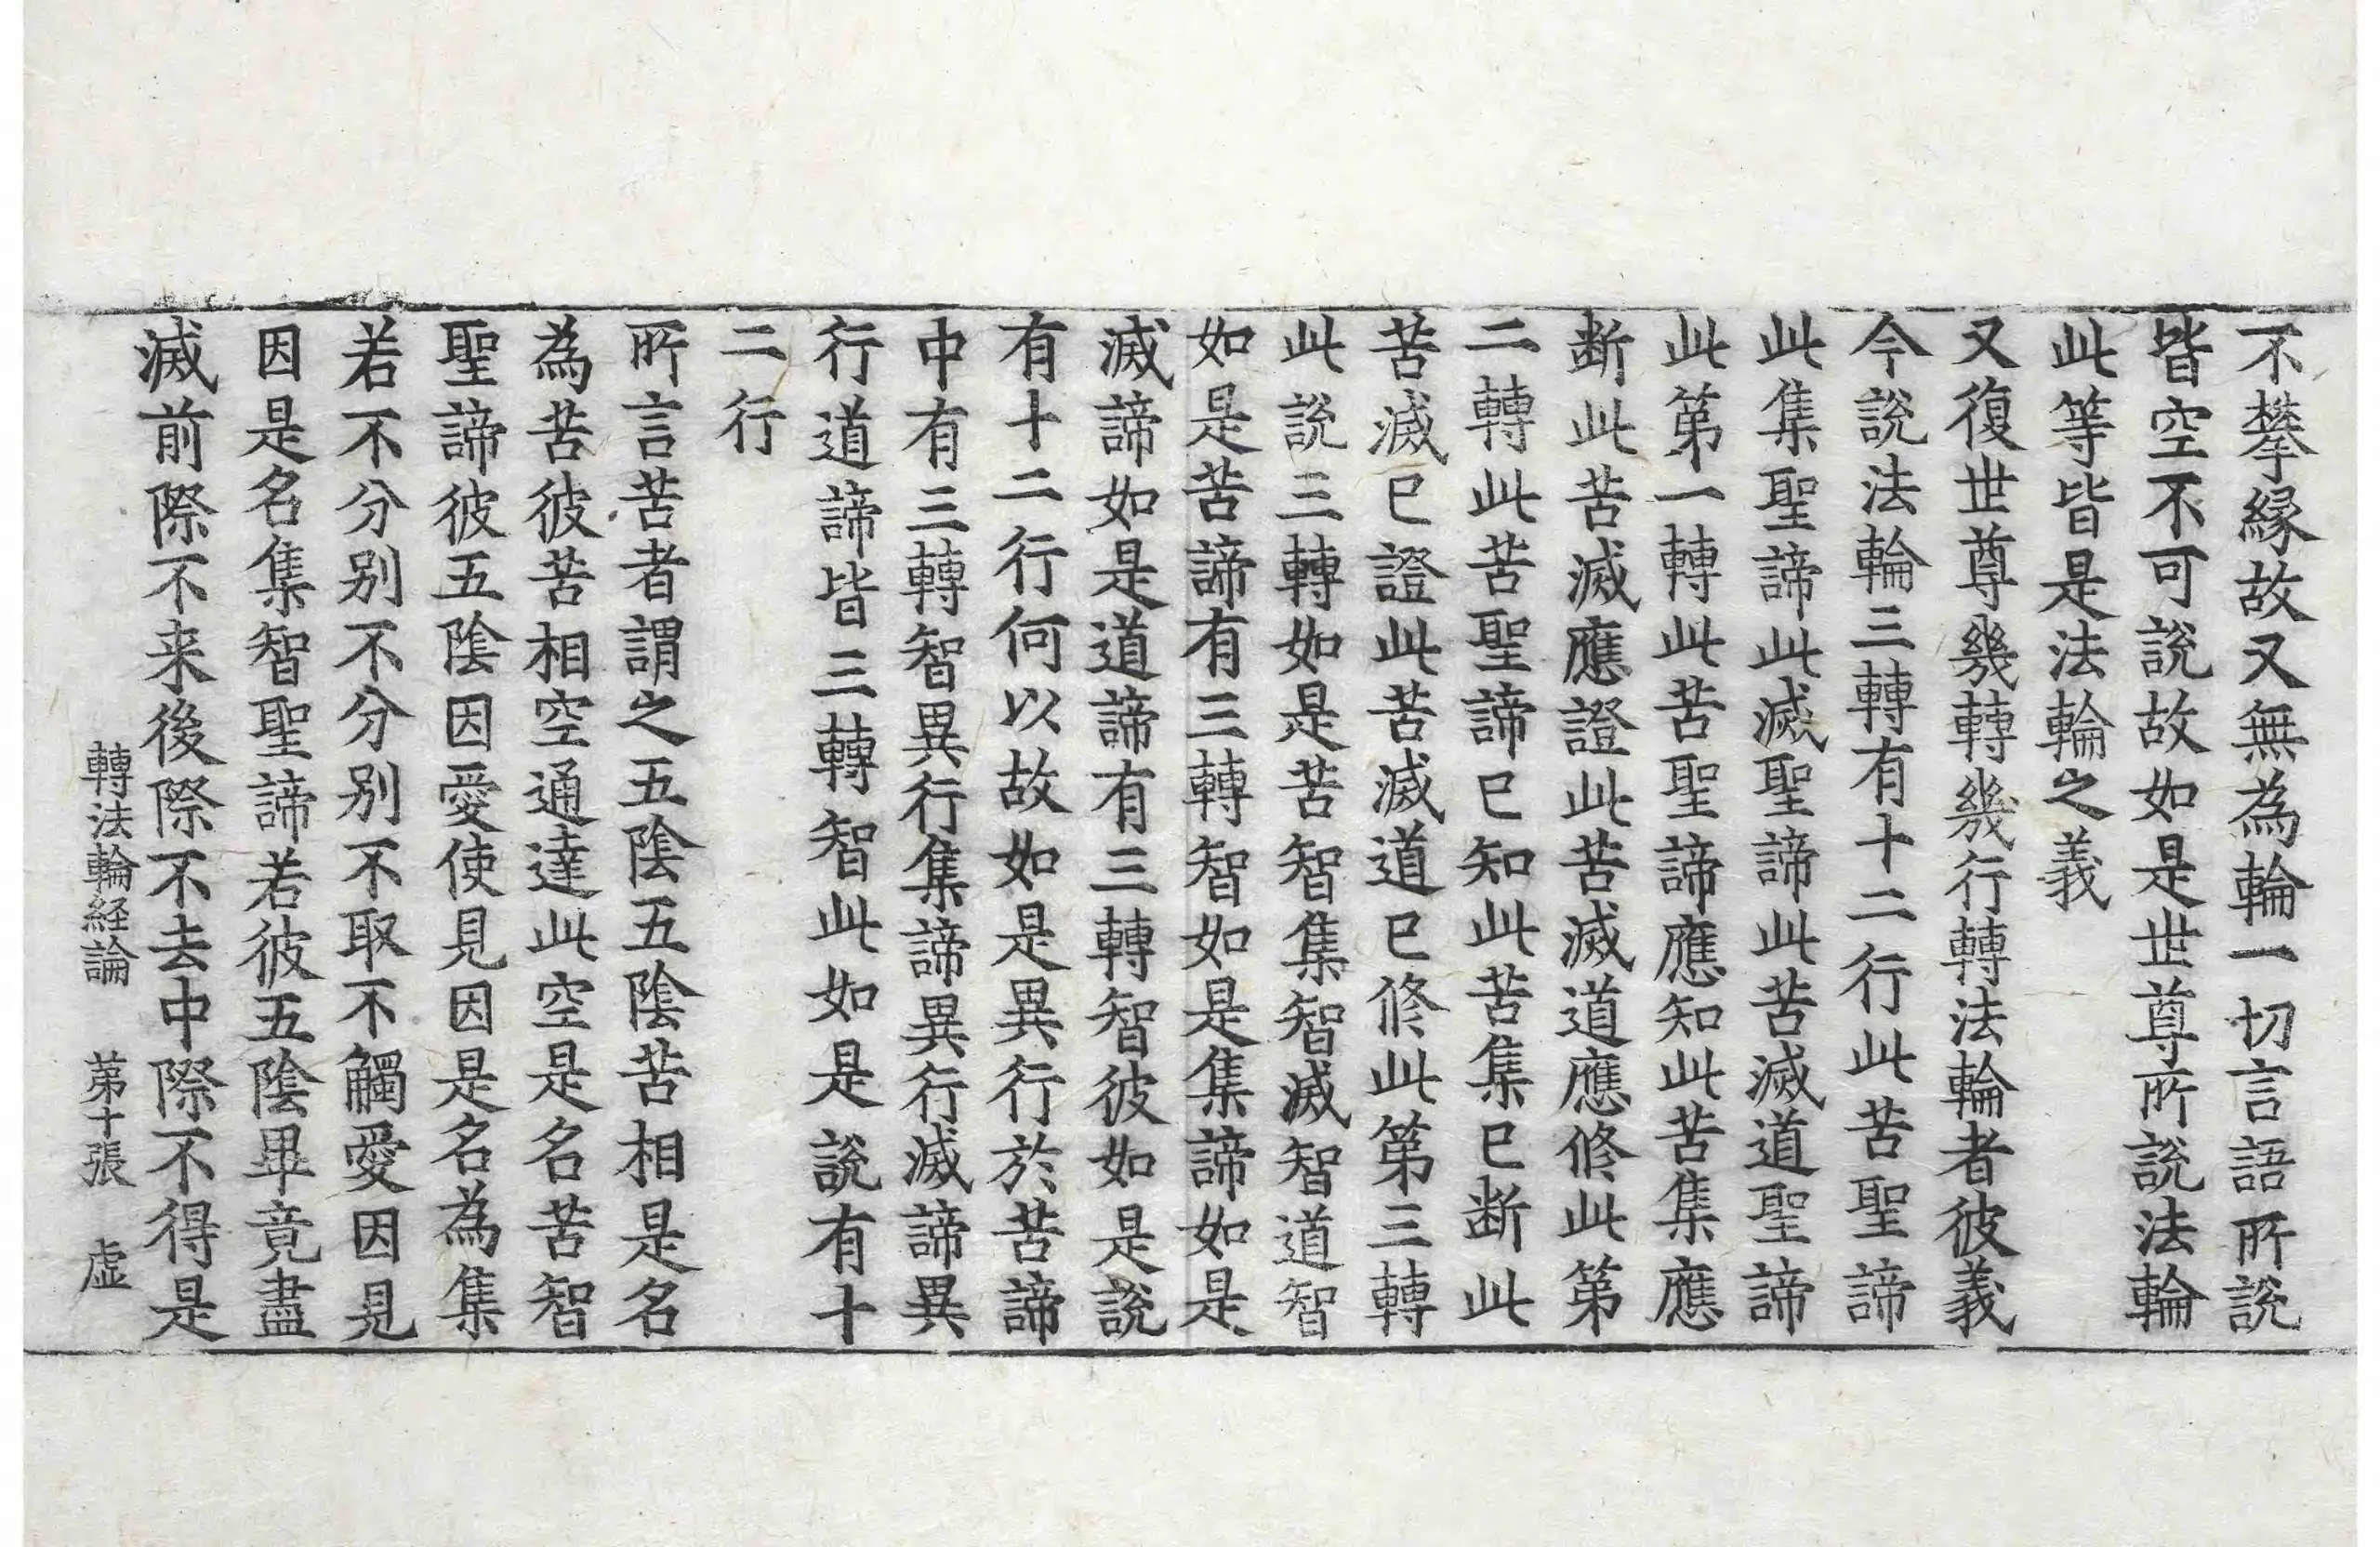 不攀縁故又無為輪一切言語所說
皆空不可說故如是世尊所說法輪
此等皆是法輪之義
又復世尊幾轉幾行轉法輪者彼義
今說法輪三轉有十二行此苦聖諦
此集聖諦此滅聖諦此苦滅道聖諦
此第一轉此苦聖諦應知此苦集應
断此苦滅應證此苦滅道應修此第
二轉此苦聖諦已知此苦集已断此
苦滅已證此苦滅道已修此第三轉
此說三轉如是苦智集智滅智道智
如是苦諦有三轉智如是集諦如是
滅諦如是道諦有三轉智彼如是說
有十二行何以故如是異行於苦諦
中有三轉智異行集諦異行滅諦異
行道諦皆三轉智此如是說有十
二行
所言苦者謂之五陰五陰苦相是名
為苦彼苦相空通達此空是名苦智
聖諦彼五陰因愛使見因是名為集
若不分别不分别不取不觸愛因見
因是名集智聖諦若彼五陰畢竟盡
滅前際不来後際不去中際不得是
轉法輪経論 第十張 虛